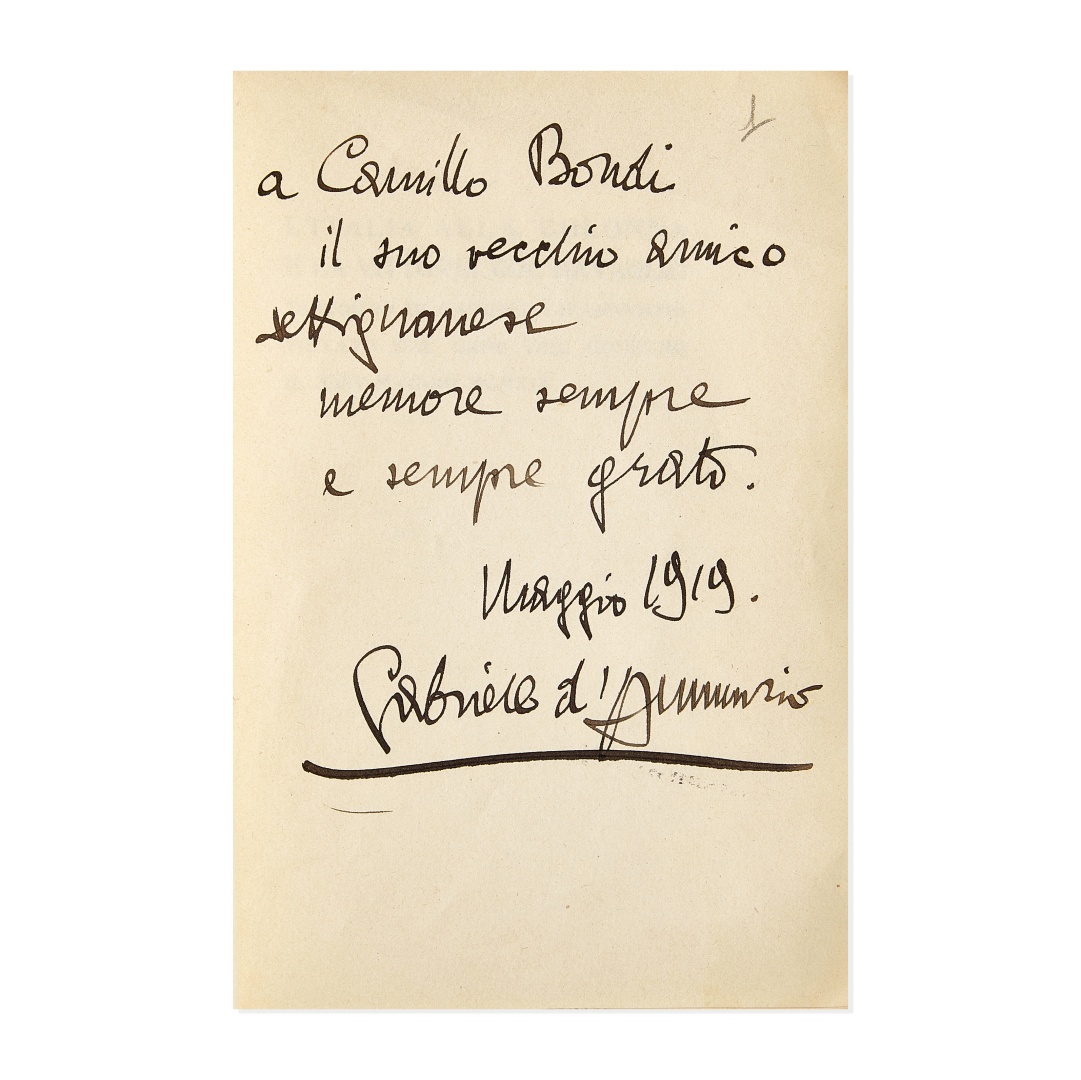 1
a Camillo Bondi
il suo vecchio amico
settignanese
memore sempre
e sempre grato.
Maggio 1919.
Gabriele d'Annunzio